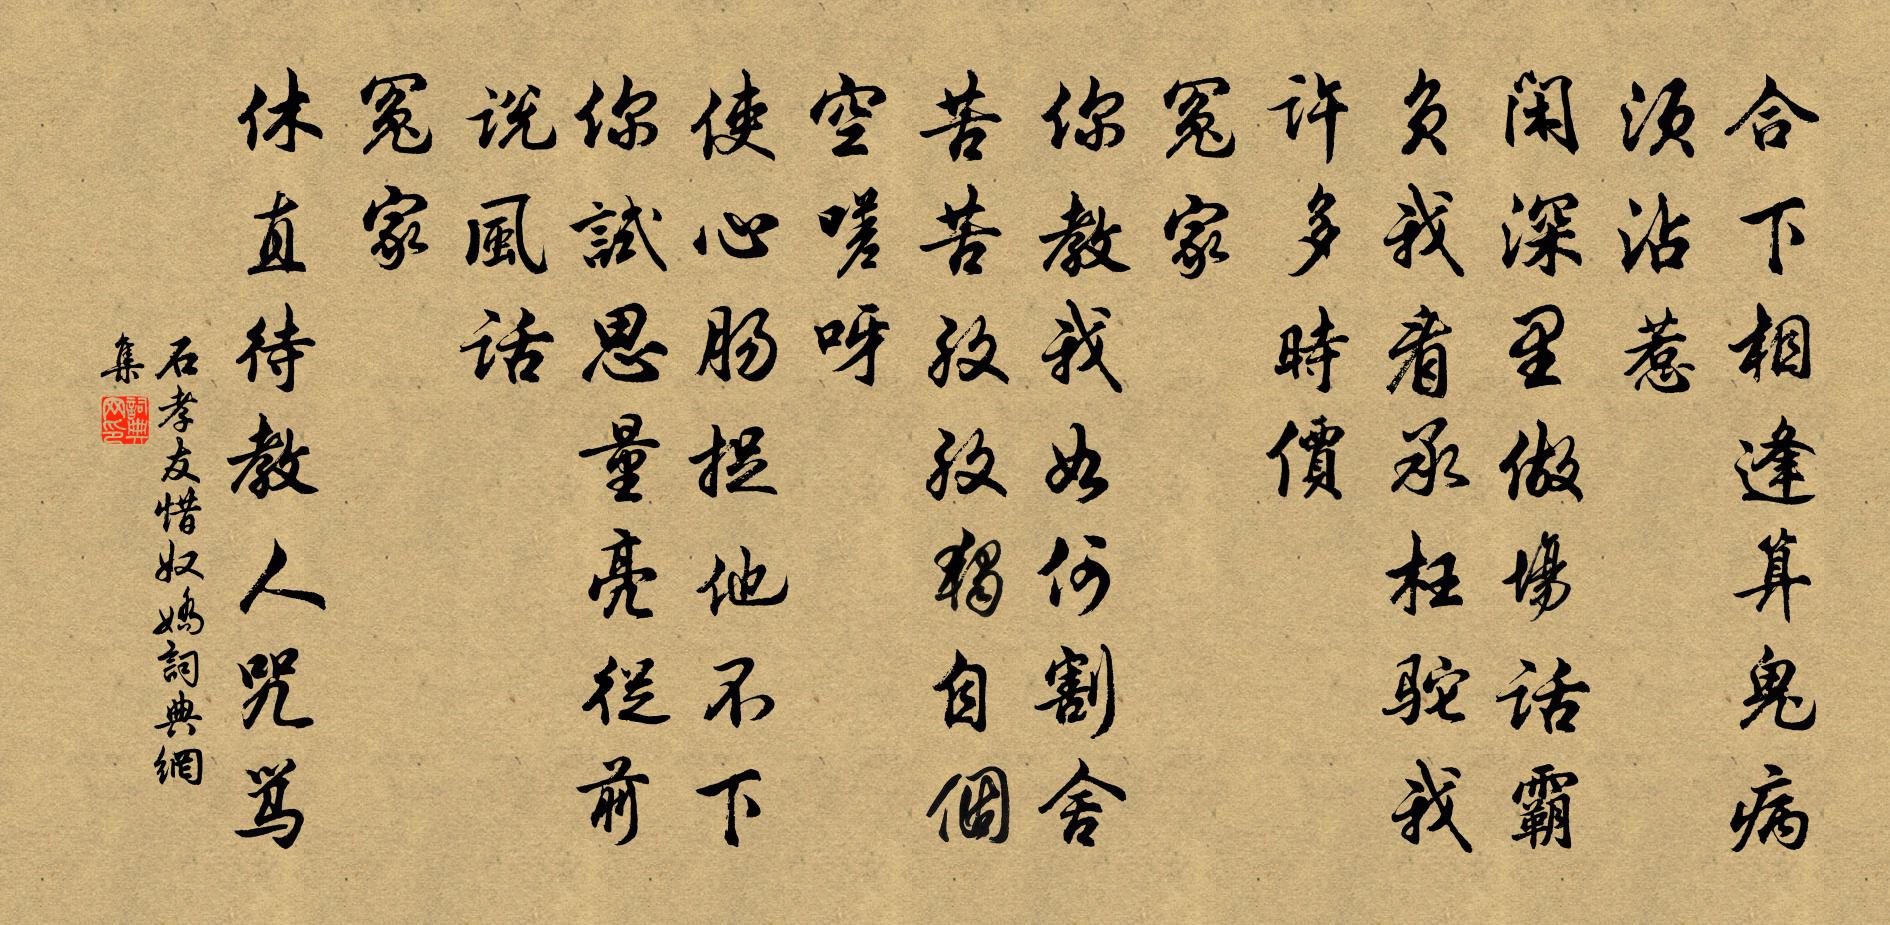 合下相逢算鬼病
須沾惹
閑深里做場話霸
負我看承枉駝我
許多時價
冤家
你教我如何割舍
苦苦孜孜獨自個
空嗟呀
使心腸捉他不下
你試思量亮從前
説風話
冤家
休直待教人咒罵
石孝友惜奴嬌詞典網
集
詞典网印